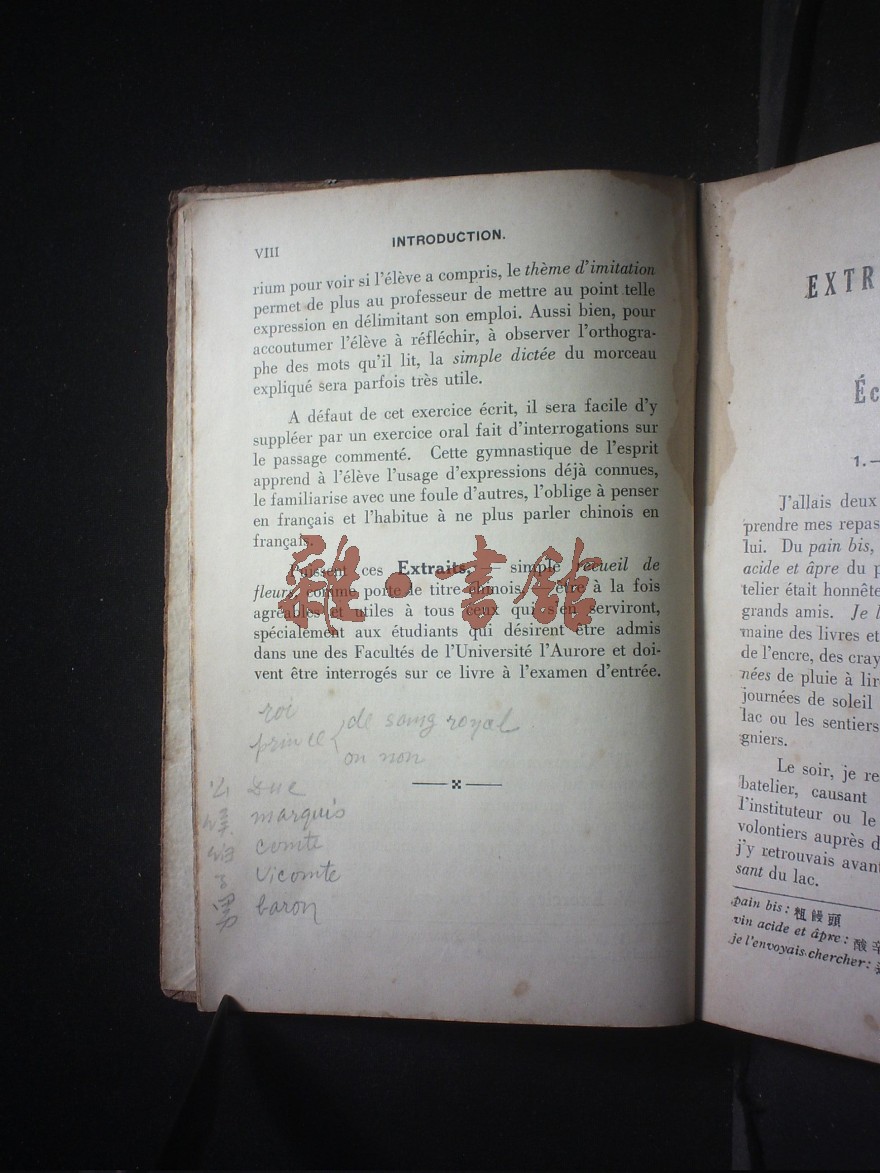 VIII
INTRODUCTION.
rium pour voir si l'élève a compris, le thème d'imitation
permet de plus au professeur de mettre au point telle
expression en délimitant son emploi. Aussi bien, pour
accoutumer l'élève à réfléchir, à observer l'orthogra-
phe des mots qu'il lit, la simple dictée du morceau
expliqué sera parfois très utile.
A défaut de cet exercice écrit, il sera facile d'y
suppléer par un exercice oral fait d'interrogations sur
le passage commenté. Cette gymnastique de l'esprit
apprend à l'élève l'usage d'expressions déjà connues,
le familiarise avec une foule d'autres, l'oblige à penser
en français et l'habitue à ne plus parler chinois en
français.
Puissent ces Extraits, — simple recueil de
fleurs, comme porte le titre chinois, — être à la fois
agréables et utiles à tous ceux qui s'en serviront,
spécialement aux étudiants qui désirent être admis
dans une des Facultés de l'Université l'Aurore et doi-
vent être interrogés sur ce livre à l'examen d'entrée.
roi
prince { de sang royal
ou non
Duc
marquis
comte
Vicomte
baron
雜·書館
EXTR
Éc
1.—
J'allais deux
prendre mes repas
lui. Du pain bis,
acide et âpre du p
telier était honnête
grands amis. Je l
maine des livres et
de l'encre, des cray
nées de pluie à lir
journées de soleil
lac ou les sentiers
gniers.
Le soir, je re
batelier, causant
l'instituteur ou le
volontiers auprès d
j'y retrouvais avan
sant du lac.
pain bis: 粗饅頭
vin acide et âpre: 酸辛
je l'envoyais chercher: